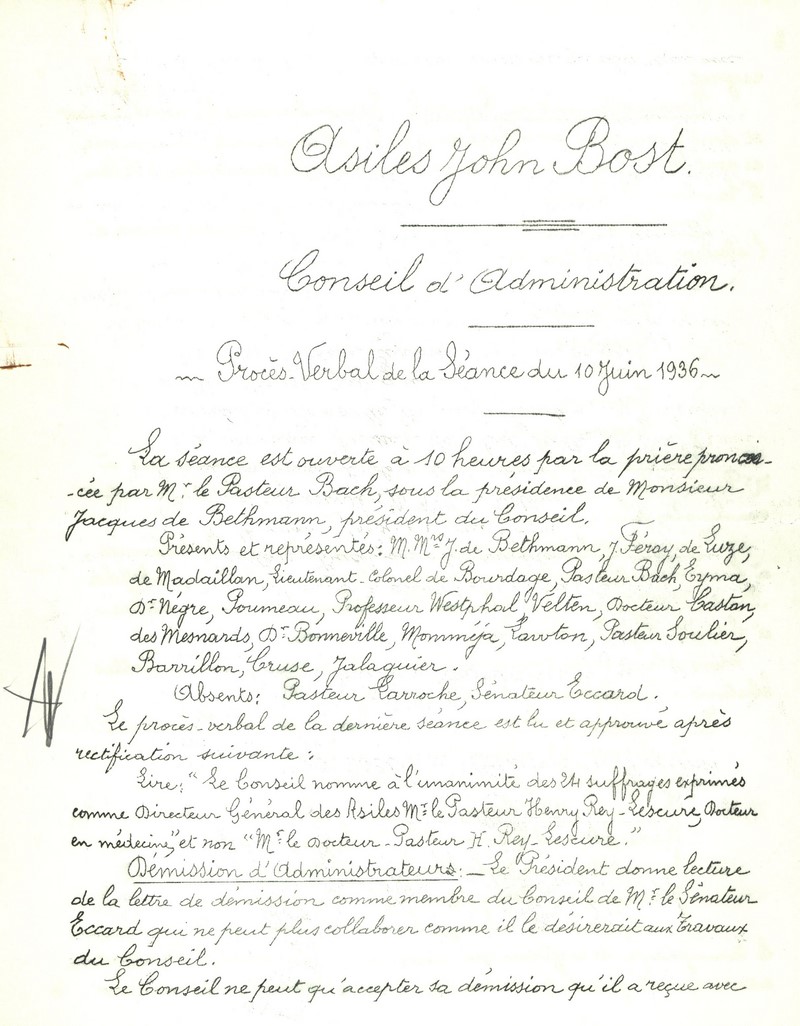 Asiles John Bost.
Conseil d'Administration.
Procès-Verbal de la Séance du 10 Juin 1936
La séance est ouverte à 10 heures par la prière pronon-
-cée par Mr le Pasteur Bach, sous la présidence de Monsieur
Jacques de Bethmann, président du Conseil.
Présents et représentés: M.Mrs J. de Bethmann, J. Féray, de Luze,
de Madaillan, Lieutenant-Colonel de Bourdage, Pasteur Bach, Eyma,
Dr Negre, Poumeau, Professeur Westphal, Velten, Docteur Castan,
des Mesnards, Dr Bonneville, Momméja, Lawton, Pasteur Soulier,
Barrillon, Cruse, Jalaguier.
Absents: Pasteur Larroche, Sénateur Eccard.
Le procès-verbal de la dernière séance est lu et approuvé après
rectification suivante:
Lire: "Le Conseil nomme à l'unanimité des 24 suffrages exprimés
comme Directeur Général des Asiles Mr le Pasteur Henry Rey-Lescure, Docteur
en médecine", et non "Mr le Docteur-Pasteur H. Rey-Lescure."
Démission d'Administrateurs:_Le Président donne lecture
de la lettre de démission comme membre du Conseil de Mr le Sénateur
Eccard qui ne peut plus collaborer comme il le désirerait aux Travaux
du Conseil.
Le Conseil ne peut qu'accepter sa démission qu'il a reçue avec